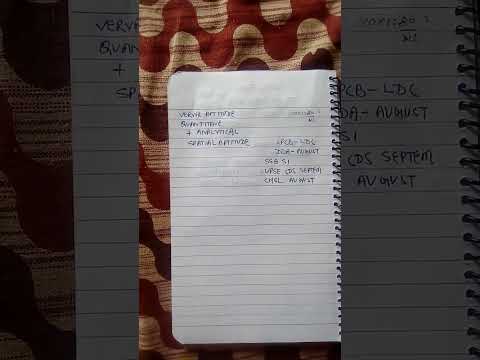 VERVAL APTITUDE
QUANTITATIVE
+ ANALYTICAL
SPATIAL APTITUDE
LDC
DDA-AUGUST
SSB SI
UPSC CDS SEPTEM
CHSL AUGUST